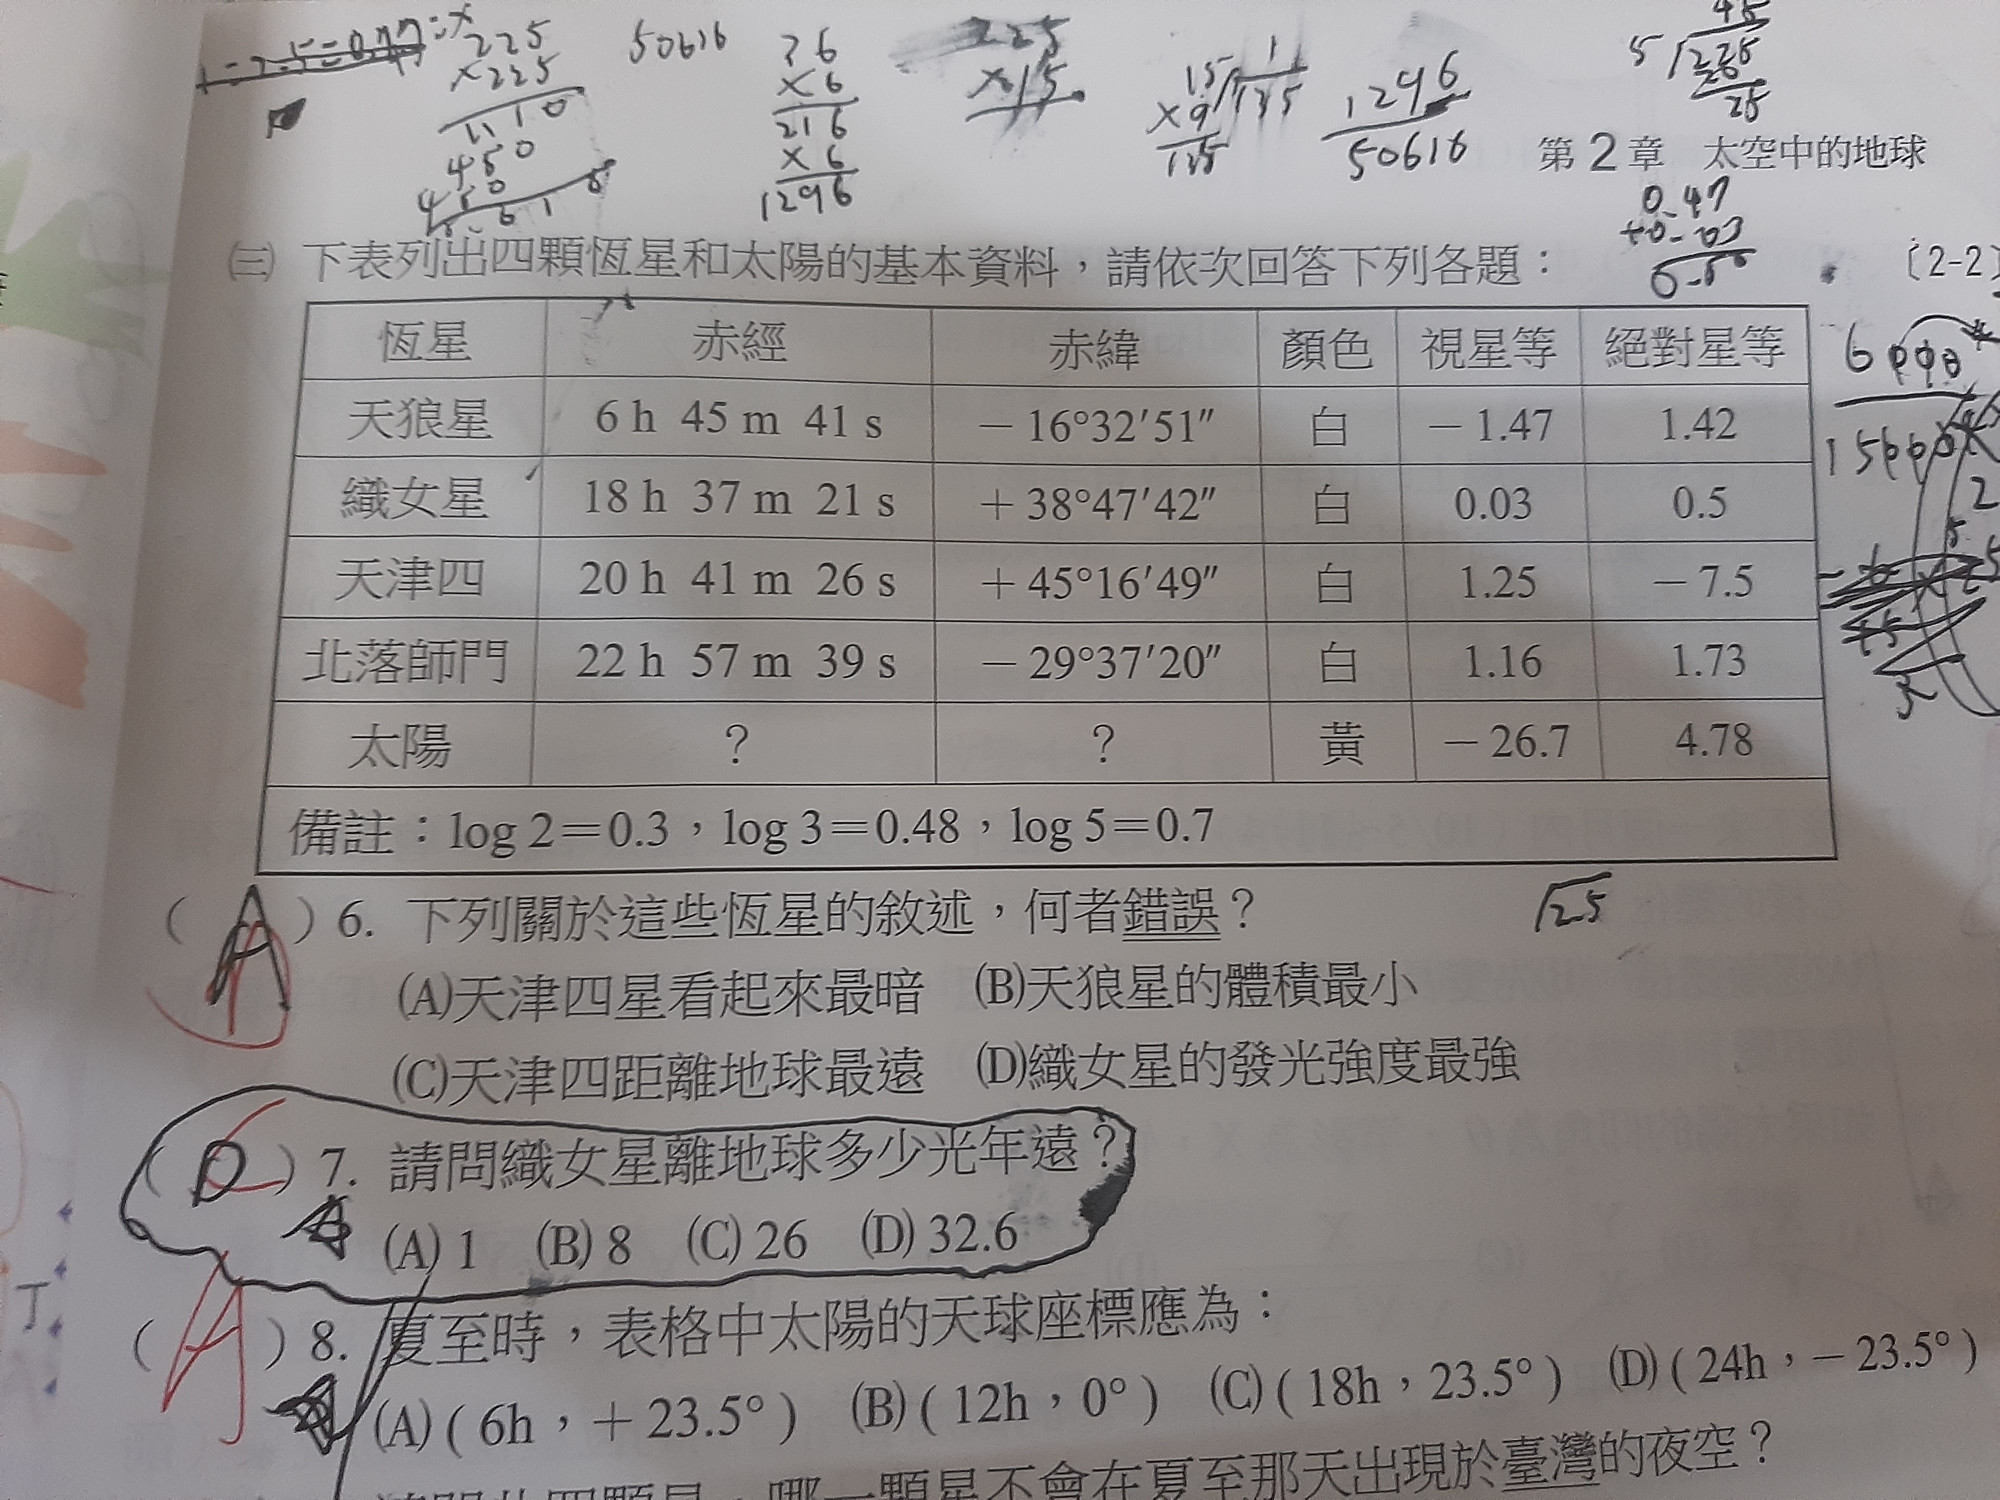 225
×225
1110
450
450
50616
36
×6
216
×6
1296
225
×15
15
×9
135
1296
50616
45
5
225
25
第2章 太空中的地球
0.47
+0.03
0.50
㈢ 下表列出四顆恆星和太陽的基本資料，請依次回答下列各題：
〔2-2〕
恆星 赤經 赤緯 顏色 視星等 絕對星等
天狼星 6 h 45 m 41 s －16°32′51″ 白 －1.47 1.42
織女星 18 h 37 m 21 s ＋38°47′42″ 白 0.03 0.5
天津四 20 h 41 m 26 s ＋45°16′49″ 白 1.25 －7.5
北落師門 22 h 57 m 39 s －29°37′20″ 白 1.16 1.73
太陽 ？ ？ 黃 －26.7 4.78
備註：log 2＝0.3，log 3＝0.48，log 5＝0.7
（ A ）6. 下列關於這些恆星的敘述，何者錯誤？
√25
(A)天津四星看起來最暗 (B)天狼星的體積最小
(C)天津四距離地球最遠 (D)織女星的發光強度最強
（ D ）7. 請問織女星離地球多少光年遠？
(A) 1 (B) 8 (C) 26 (D) 32.6
（ A ）8. 夏至時，表格中太陽的天球座標應為：
(A) ( 6h，＋23.5° ) (B) ( 12h，0° ) (C) ( 18h，23.5° ) (D) ( 24h，－23.5° )
哪一顆星不會在夏至那天出現於臺灣的夜空？